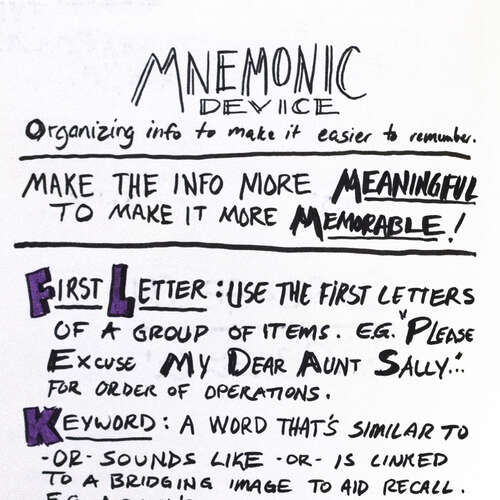 MNEMONIC
DEVICE
Organizing info to make it easier to remember.
MAKE THE INFO MORE MEANINGFUL
TO MAKE IT MORE MEMORABLE!
FIRST LETTER: USE THE FIRST LETTERS
OF A GROUP OF ITEMS. E.G. "PLEASE
EXCUSE MY DEAR AUNT SALLY..."
FOR ORDER OF OPERATIONS.
KEYWORD: A WORD THAT'S SIMILAR TO
-OR- SOUNDS LIKE -OR- IS LINKED
TO A BRIDGING IMAGE TO AID RECALL.